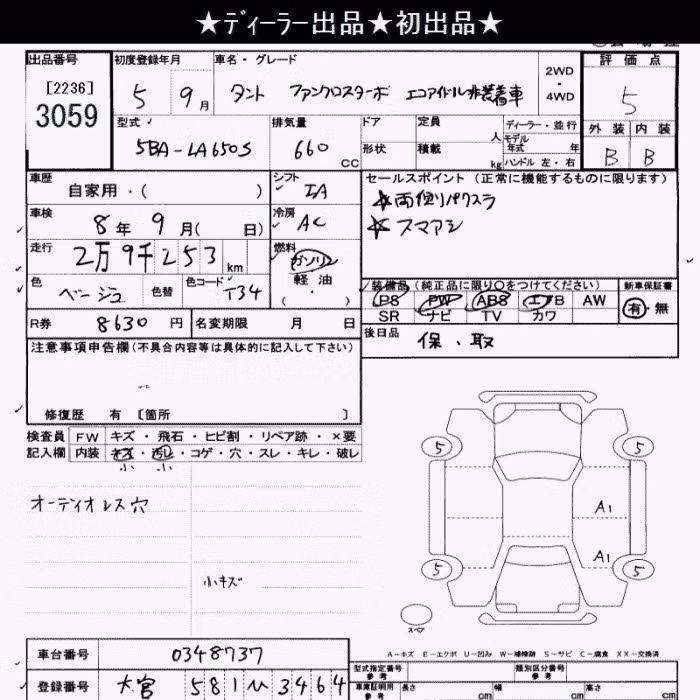 ★ディーラー出品★初出品★
出品番号 初度登録年月 車名・グレード 評価点
[2236] 3059
5 9月 タント ファンクロスターボ エコアイドル非装着車 2WD・4WD 5
型式 排気量 ドア 定員 人 ディーラー・並行 外装 内装
5BA-LA650S 660 CC 形状 積載 kg モデル年式 年 ハンドル 左・右 B B
車歴 自家用・( ) シフト IA セールスポイント (正常に機能するものに限ります)
車検 8年 9月( 日) 冷房 AC ☆両側パワスラ
☆スマアシ
走行 2万9千253km 燃料 ガソリン 軽油 ( ・ )
色 ベージュ 色替 色コード T34 装備品 (純正品に限り○をつけてください) 新車保証書
PS PW ABS エアB AW 有・無
SR ナビ TV カワ
R券 8630円 名変期限 月 日 後日品 保、取
注意事項申告欄 (不具合内容等は具体的に記入して下さい)
修復歴 有 〔箇所 〕
検査員 FW キズ・飛石・ヒビ割・リペア跡・×要
記入欄 内装 キズ・汚レ・コゲ・穴・スレ・キレ・破レ
小 小
オーディオレス穴
小キズ
5 5
A1
A1
5 5
スペア
A-キズ E-エクボ U-凹み W-補修跡 S-サビ C-腐食 XX-交換済
車台番号 0348737 型式指定番号 参考 類別区分番号 参考
登録番号 大宮 581 ム 3464 車庫証明用 参考 長さ cm 幅 cm 高さ cm